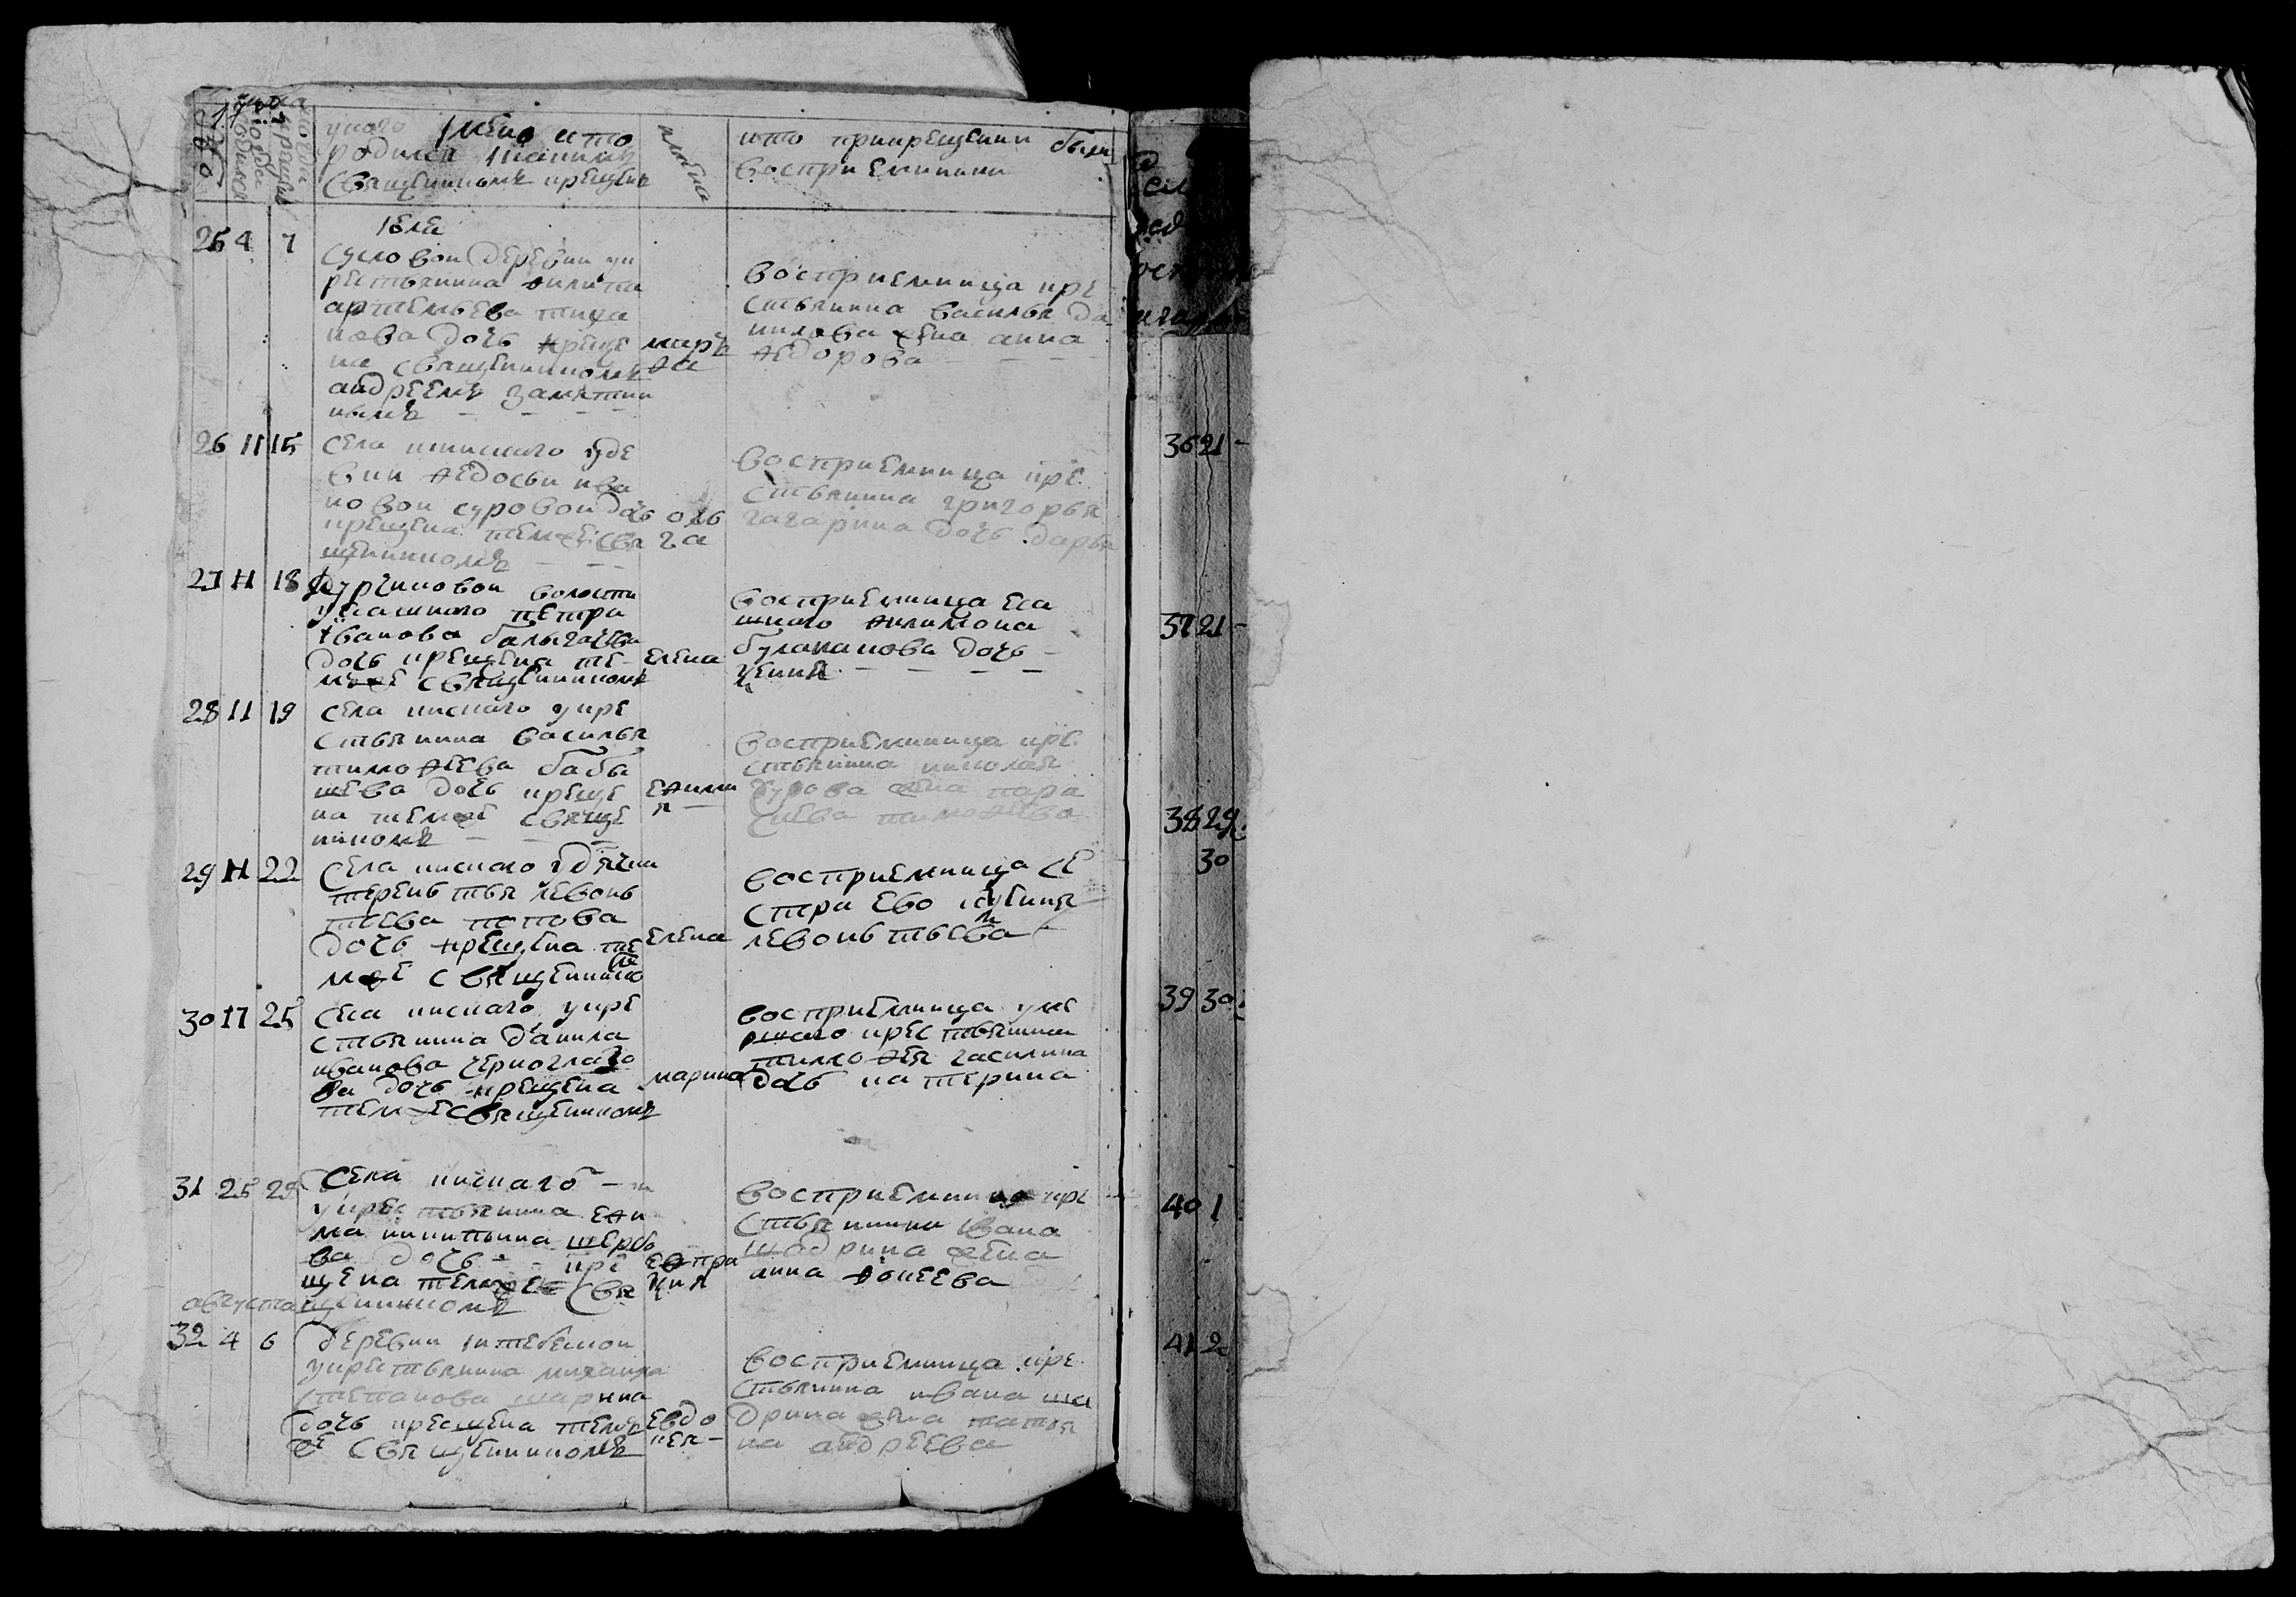 1780
число
когда родился
когда крещен
у кого имено и кто
родился и каким
священникомъ крещенъ
имена
кто при крещении были
восприемники
июля
25 4 7
Сусловой деревни у к
рестьянина филипа
артемьева тиха
нова дочь креще
на священникомъ
андреемъ замятни
нымъ — — —
марѳа
восприемница кре
стьянина василья да
нилова жена анна
ѳедорова — — —
26 11 15
села киискаго у вде
вии ѳедосьи ива
новой суровой дочь
крещена темже свя
щенникомъ — — —
олга
восприемница кре
стьянина григорья
гагарина дочь дарья
27 11 18
волости
у ясашнаго петра
ивановa
дочь крещена те-
мже священникомъ
елена
восприемница яса
шнаго филимона
булаканова дочь —
— — —
28 11 19
села кискаго у кре
стьянина василья
тимоѳеева бабы
шева дочь креще
на темже свяще
никомъ — — —
еѳими
я —
восприемница кре
стьянина николая
бурова жена пара
сиева тимоѳеева
29 11 22
Села кискаго у дьячка
терентья левонь
тьева попова
дочь крещена те
мже священнико
мъ
елена
восприемница се
стра ево ксениа
левонтьева —
30 17 25
Села кискаго у кре
стьянина данила
иванова черноглазо
ва дочь крещена
темже священникомъ
марина
восприемница уме
ршаго крестьянина
тимоѳея гасилина
дочь катерина
31 25 29
Села кискаго —
у крестьянина еѳи
ма никитина щербо
ва дочь — кре
щена темже свя
щенникомъ
еѳпра
кция
восприемница кре
стьянина ивана
шадрина жена
анна ѳокеева
августа
32 4 6
деревни
у крестьянина михаила
степанова шарина
дочь крещена темъ
же священникомъ
евдо
кея —
восприемница кре
стьянина ивана ша
дрина жена татья
на андреева
36 21 -
37 21 -
38 29.
30
39 30
40 1
41 2